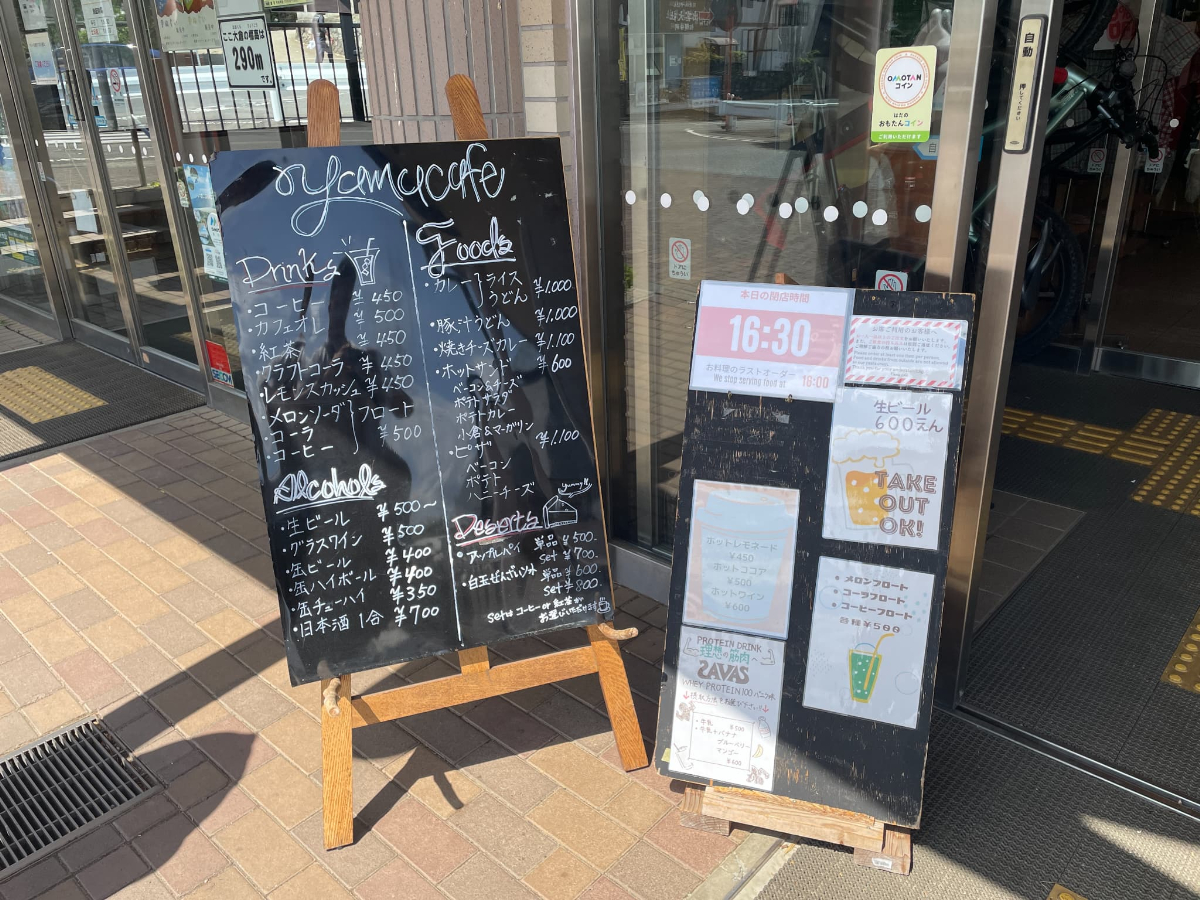 ここ大倉の標高は
290m
です。
yamacafe
Drinks
・コーヒー ¥450
・カフェオレ ¥500
・紅茶 ¥450
・クラフトコーラ ¥450
・レモンスカッシュ ¥450
・メロンソーダ
・コーラ
・コーヒー
フロート
¥500
Alcohols
・生ビール ¥500〜
・グラスワイン ¥500
・缶ビール ¥400
・缶ハイボール ¥400
・缶チューハイ ¥350
・日本酒 1合 ¥700
Foods
・カレー ライス
うどん ¥1,000
・豚汁うどん ¥1,000
・焼きチーズカレー ¥1,100
・ホットサンド ¥600
ベーコン&チーズ
ポテトサラダ
ポテトカレー
小倉&マーガリン
・ピザ ¥1,100
ベーコン
ポテト
ハニーチーズ
Deserts
yummy!!
・アップルパイ 単品¥500-
set¥700-
・白玉ぜんざいソフト 単品¥600-
set¥800-
setは コーヒーor 紅茶が
お選びいただけます
本日の閉店時間
16:30
お料理のラストオーダー
We stop serving food at 16:00
生ビール
600えん
TAKE
OUT
OK!
ホットレモネード
¥450
ホットココア
¥500
ホットワイン
¥600
・メロンフロート
・コーラフロート
・コーヒーフロート
各種¥500
PROTEIN DRINK
理想の筋肉へ
SAVAS
WHEY PROTEIN100 バニラ味
・牛乳 ¥500
・牛乳+バナナ
ブルーベリー
マンゴー
¥600
OMOTAN
コイン
はだの
おもたんコイン
ご利用いただけます
自動
押してください